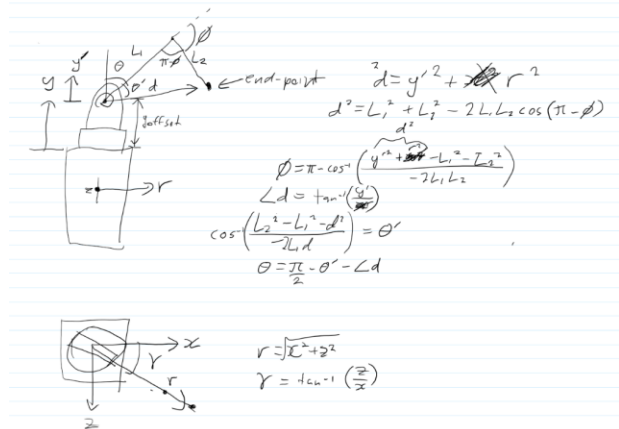 ϕ
L₁
θ
y'
y
π-ϕ
L₂
θ'
d
end-point
yoffset
z
r
d² = y'² + r²
d² = L₁² + L₂² - 2L₁L₂ cos(π - ϕ)
d²
ϕ = π - cos⁻¹ ( (y'² + r² - L₁² - L₂²) / (-2L₁L₂) )
∠d = tan⁻¹ (y' / )
cos⁻¹ ( (L₂² - L₁² - d²) / (-2L₁d) ) = θ'
θ = π/2 - θ' - ∠d
x
γ
r
z
r = √(x² + z²)
γ = tan⁻¹ (z/x)